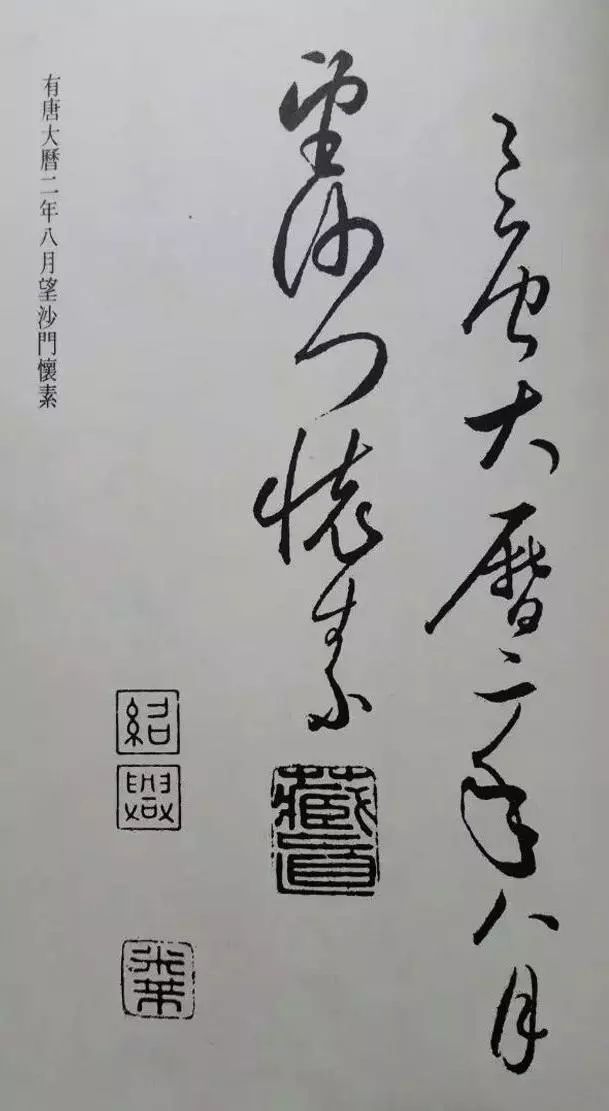 有唐大曆二年八月
望沙門懷素
有唐大曆二年八月望沙門懷素
紹
興